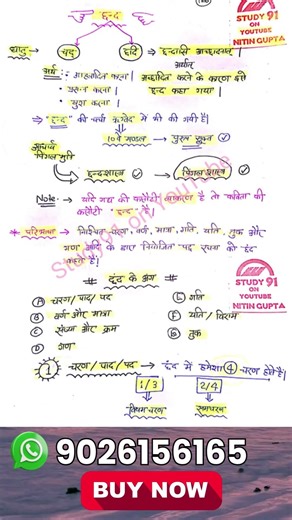 छन्द
STUDY 91
ON
YOUTUBE
NITIN GUPTA
धातु
चद्
छदि → "छन्दासि आच्छादनात्"
अर्थात्
अर्थ : आह्लादित करना | आच्छादित करने के कारण ही
प्रसन्न करना | 'छन्द' कहा गया |
खुश करना |
"छन्द" की चर्चा ऋग्वेद में भी की गयी है |
10वें मण्डल → पुरुष सूक्त
आचार्य
पिंगल मुनि
छन्दशास्त्र
पिंगलशास्त्र
Note - यदि गद्य की कसौटी व्याकरण है तो 'कविता' की
कसौटी 'छन्द' है |
STUDY 91
ON
YOUTUBE
NITIN GUPTA
* परिभाषा निश्चित चरण, वर्ण, मात्रा, गति, यति, तुक और
गण आदि के द्वारा नियोजित पद्य रचना को छंद
कहते है |
Study91 on YouTube
# छंद के अंग #
A चरण/पाद/पद E गति
B वर्ण और मात्रा F यति/विराम
C संख्या और क्रम G तुक
D गण
STUDY 91
ON
YOUTUBE
NITIN GUPTA
1 चरण/पाद/पद → छंद में हमेशा 4 चरण होते है |
1/3 2/4
विषमचरण समचरण
9026156165
BUY NOW